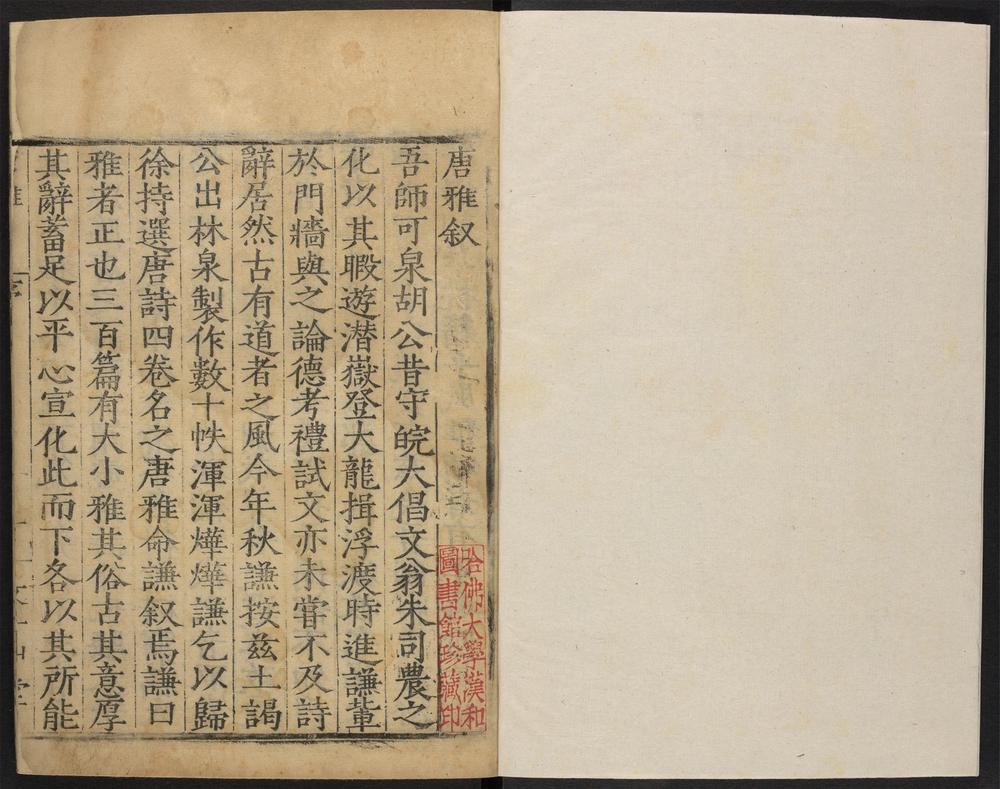 唐雅叙
吾師可泉胡公昔守皖大倡文翁朱司農之
化以其暇遊潛嶽登大龍揖浮渡時進謙輩
於門牆與之論德考禮試文亦未嘗不及詩
辭居然古有道者之風今年秋謙按茲土謁
公出林泉製作數十帙渾渾燁燁謙乞以歸
徐持選唐詩四卷名之唐雅命謙叙焉謙曰
雅者正也三百篇有大小雅其俗古其意厚
其辭蓄足以平心宣化此而下各以其所能
哈佛大學漢和
圖書館珍藏印